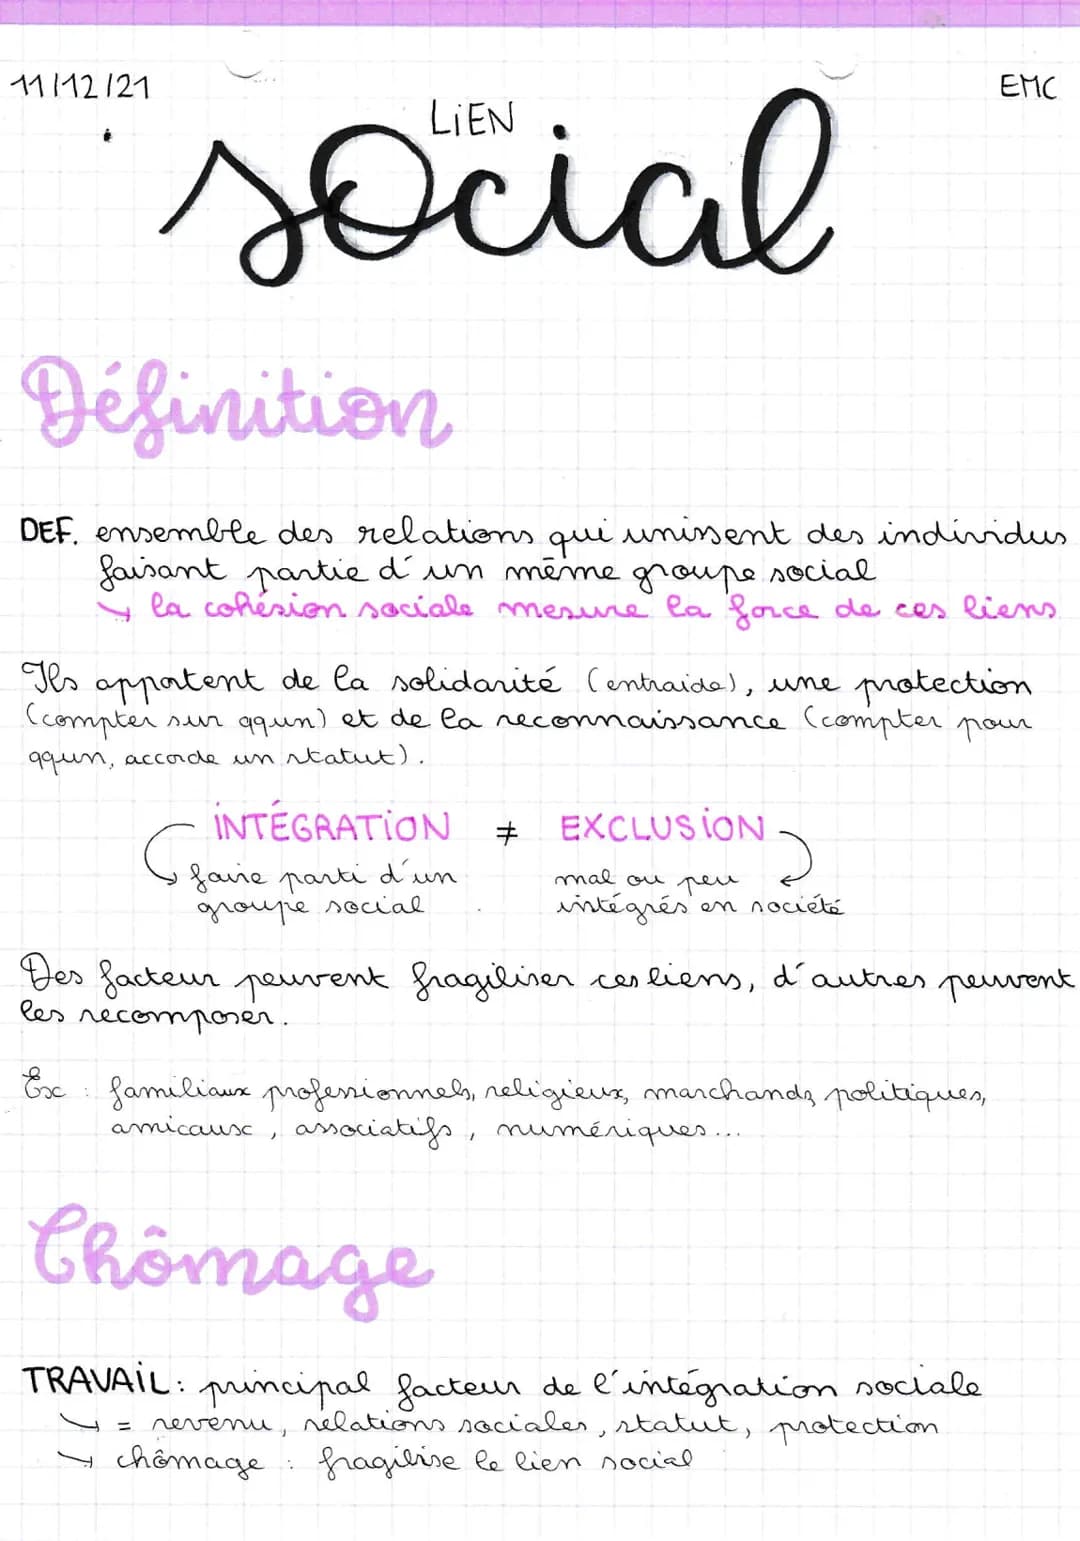 11/12/21
EMC
LiEN
social
Définition
DEF. ensemble des relations qui unissent des individus
faisant partie d'un même groupe social
↳ la cohésion sociale mesure la force de ces liens
Ils apportent de la solidarité (entraide), une protection
(compter sur qqun) et de la reconnaissance (compter pour
qqun, accorde un statut).
iNTÉGRATiON ≠ EXCLUSiON
faire parti d'un mal ou peu
groupe social intégrés en société
Des facteur peuvent fragiliser ces liens, d'autres peuvent
les recomposer.
Ex : familiaux professionnels, religieux, marchands politiques,
amicaux, associatifs, numériques...
Chômage
TRAVAiL : principal facteur de l'intégration sociale
↳ = revenu, relations sociales, statut, protection
↳ chômage : fragilise le lien social